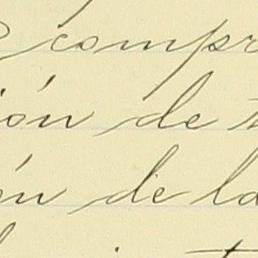 compr
ión de t
ón de la